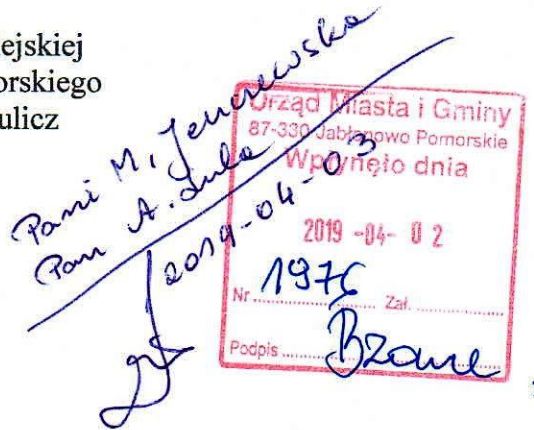 ejskiej
orskiego
ulicz
Pani M.
Pan A.
2019-04-03
Urząd Miasta i Gminy
87-330 Jabłonowo Pomorskie
Wpłynęło dnia
2019 -04- 0 2
Nr 1976 Zał.
Podpis